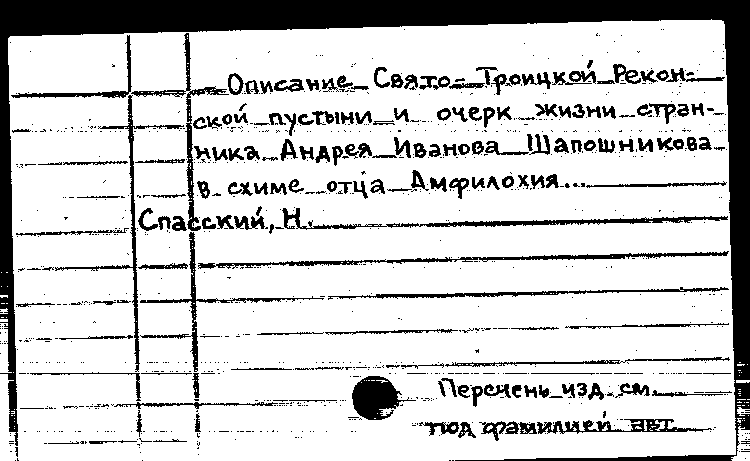 Описание Свято-Троицкой Рекон-
ской пустыни и очерк жизни стран-
ника Андрея Иванова Шапошникова
в схиме отца Амфилохия...
Спасский, Н.
Перечень изд. см.
под фамилией авт.